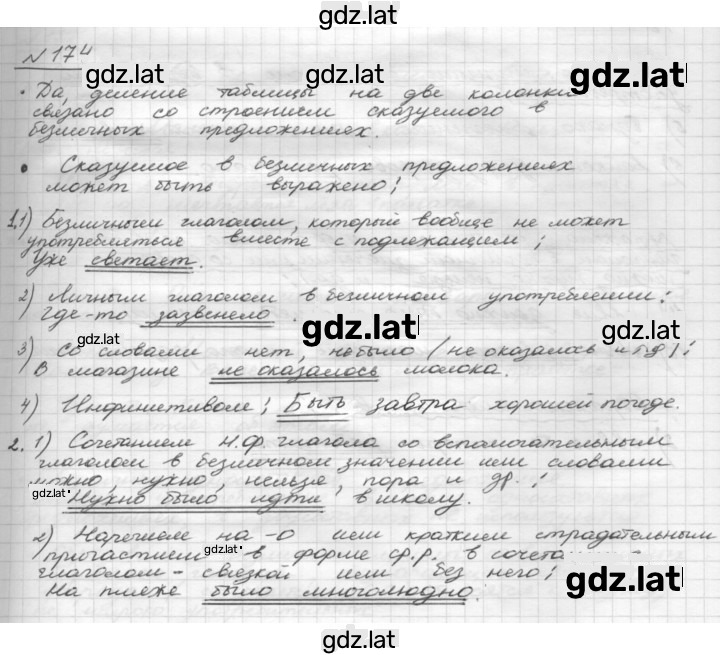 gdz.lat
№ 174
gdz.lat gdz.lat
• Да, деление таблицы на две колонки
связано со строением сказуемого в
безличных предложениях.
• Сказуемое в безличных предложениях
может быть выражено:
1.1) Безличным глаголом, который вообще не может
употребляться вместе с подлежащим;
Уже светает.
2) Личным глаголом в безличном употреблении:
Где-то зазвенело.
gdz.lat gdz.lat gdz.lat
3) Со словами нет, не было (не оказалось и т.д.):
В магазине не оказалось молока.
4) Инфинитивом: Быть завтра хорошей погоде.
2. 1) Сочетанием н.ф. глагола со вспомогательным
глаголом в безличном значении или словами
можно нужно, нельзя, пора и др.:
gdz.lat
Нужно было идти в школу.
2) Наречием на -о или кратким страдательным
причастием в форме ср.р. в сочета
gdz.lat
глаголом-связкой или без него:
gdz.lat
На пляже было многолюдно.
gdz.lat